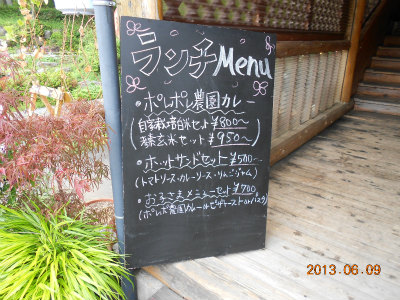 ランチMenu
・ポレポレ農園カレー
(自家栽培白米セット ¥800〜
酵素玄米セット ¥950〜)
・ホットサンドセット ¥500〜
(トマトソース・カレーソース・りんごジャム)
・お子さまメニューセット ¥700
(ポレポレ農園カレー or ピザトースト or パスタ)
2013.06.09